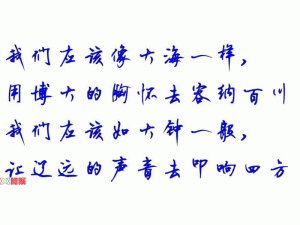 我们应该像大海一样,
用博大的胸怀去容纳百川
我们应该如大钟一般,
让辽远的声音去叩响四方